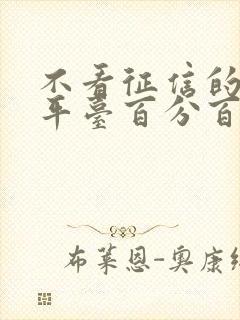 不看征信的
平台百分百
布莱恩-奥康纳